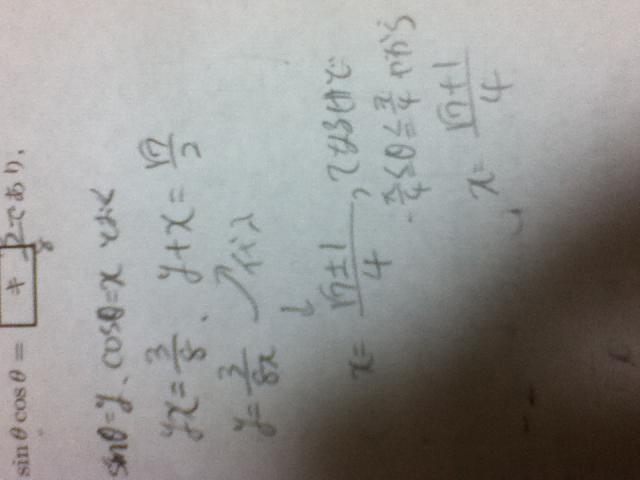 sinθcosθ = キ 3/8 であり,
sinθ=y、cosθ=x とおく
yx = 3/8 、 y+x = √7/2
y = 3/8x 代入
x = (√7±1)/4 , てなるけど
-π/4≦θ≦π/4 やから
x = (√7+1)/4